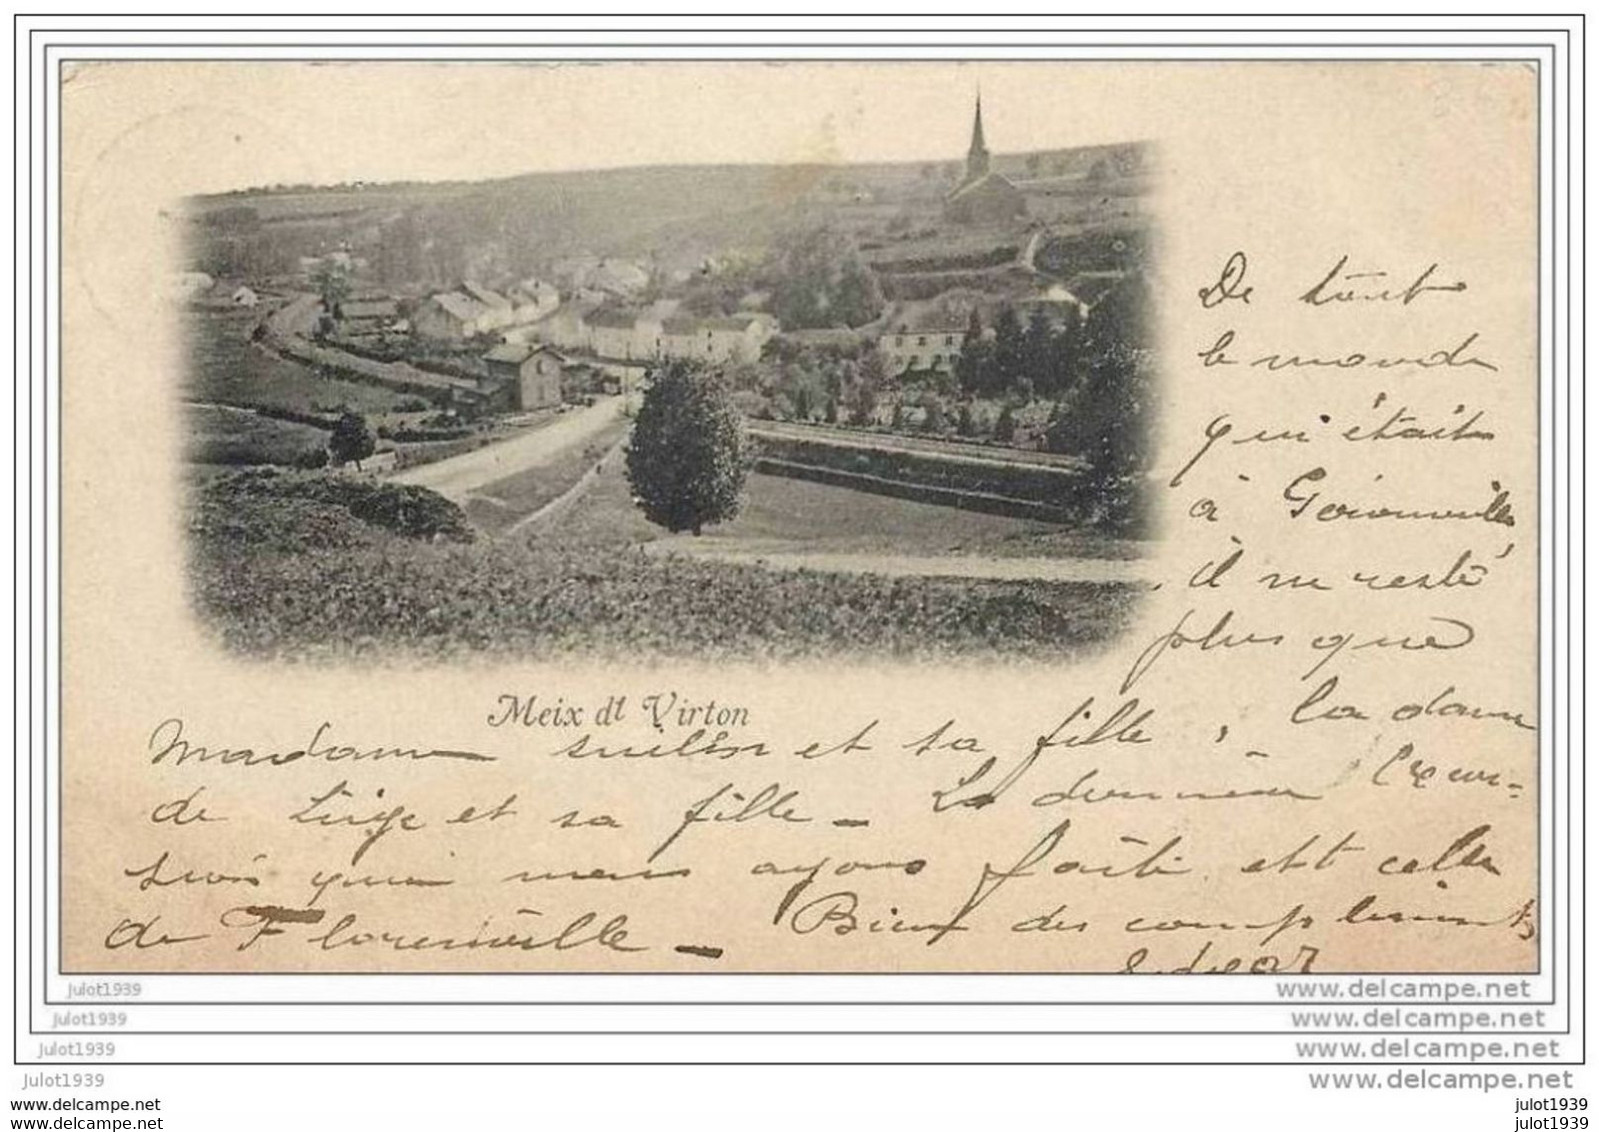 De tout
le monde
qui était
à Gérouville,
il ne reste
plus que
Meix dt Virton
Madame et sa fille, la dame
de Liège et sa fille - La dernière excur-
sion que nous ayons faite est celle
de Florenville - Bien des compliments
Edgar
julot1939
www.delcampe.net
julot1939
www.delcampe.net
julot1939
www.delcampe.net
julot1939
www.delcampe.net
www.delcampe.com
julot1939
www.delcampe.com
julot1939